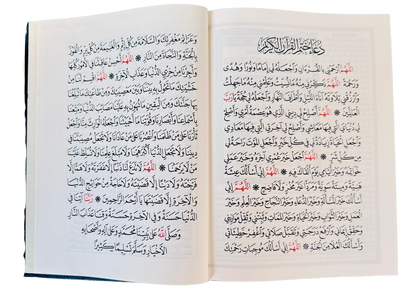 دعاء ختم القرآن الكريم
اللهم ارحمني بالقرآن واجعله لي إماما ونورا وهدى
ورحمة * اللهم ذكرني منه ما نسيت وعلمني منه ما جهلت
وارزقني تلاوته آناء الليل وأطراف النهار واجعله لي حجة يا رب
العالمين * اللهم أصلح لي ديني الذي هو عصمة أمري وأصلح
لي دنياي التي فيها معاشي وأصلح لي آخرتي التي فيها معادي
واجعل الحياة زيادة لي في كل خير واجعل الموت راحة لي
من كل شر * اللهم اجعل خير عمري آخره وخير عملي
خواتمه وخير أيامي يوم ألقاك فيه * اللهم إني أسألك عيشة
هنية وميتة سوية ومردا غير مخز ولا فاضح * اللهم إني
أسألك خير المسألة وخير الدعاء وخير النجاح وخير العلم وخير
العمل وخير الثواب وخير الحياة وخير الممات وثبتني وثقل موازيني
وحقق إيماني وارفع درجتي وتقبل صلاتي واغفر خطيئاتي
وأسألك العلا من الجنة * اللهم إني أسألك موجبات رحمتك
وعزائم مغفرتك والسلامة من كل إثم والغنيمة من كل بر والفوز
بالجنة والنجاة من النار * اللهم أحسن عاقبتنا في الأمور كلها
وأجرنا من خزي الدنيا وعذاب الآخرة * اللهم اقسم لنا من
خشيتك ما تحول به بيننا وبين معصيتك ومن طاعتك ما تبلغنا
بها جنتك ومن اليقين ما تهون به علينا مصائب الدنيا ومتعنا
بأسماعنا وأبصارنا وقوتنا ما أحييتنا واجعله الوارث منا واجعل
ثأرنا على من ظلمنا وانصرنا على من عادانا ولا تجعل مصيبتنا في
ديننا ولا تجعل الدنيا أكبر همنا ولا مبلغ علمنا ولا تسلط علينا
من لا يرحمنا * اللهم لا تدع لنا ذنبا إلا غفرته ولا هما إلا
فرجته ولا دينا إلا قضيته ولا حاجة من حوائج الدنيا
والآخرة إلا قضيتها يا أرحم الراحمين * ربنا آتنا في
الدنيا حسنة وفي الآخرة حسنة وقنا عذاب النار
وصلى الله على نبينا محمد وعلى آله وأصحابه
الأخيار وسلم تسليما كثيرا